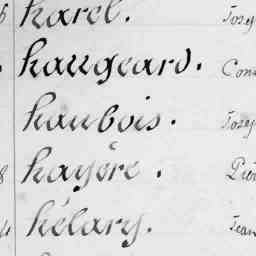 harel. Jose
haugeard. Con
haubois. Jose
8 hayère. Pie
hélary. Jean